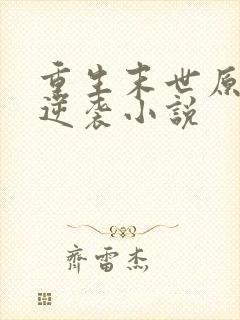 重生末世原
逆袭小說
齊雷杰